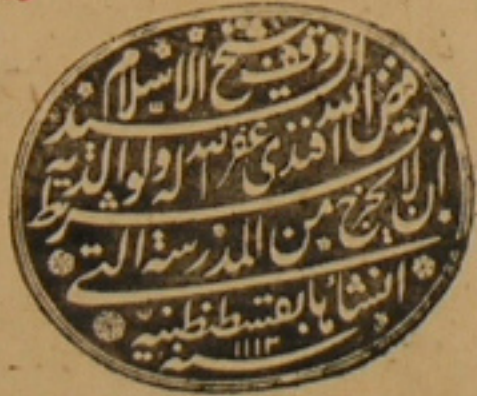 وقف شيخ الاسلام
السيد فيض الله
افندى غفر الله له ولوالديه
بشرط ان لا يخرج من المدرسة التى
انشأها بقسطنطينية
سنه ١١١٣